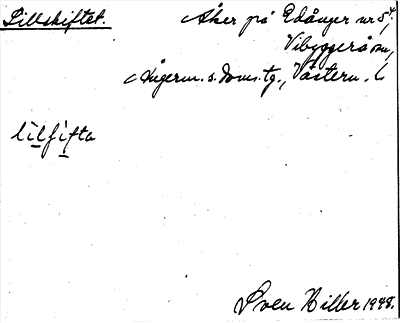 Lillskiftet. Åker på Edånger nr 5⁴,
Vibyggerå sn,
Ångerm. s. doms. tg., Västern. l.
lilfifta
Sven Hiller 1948.